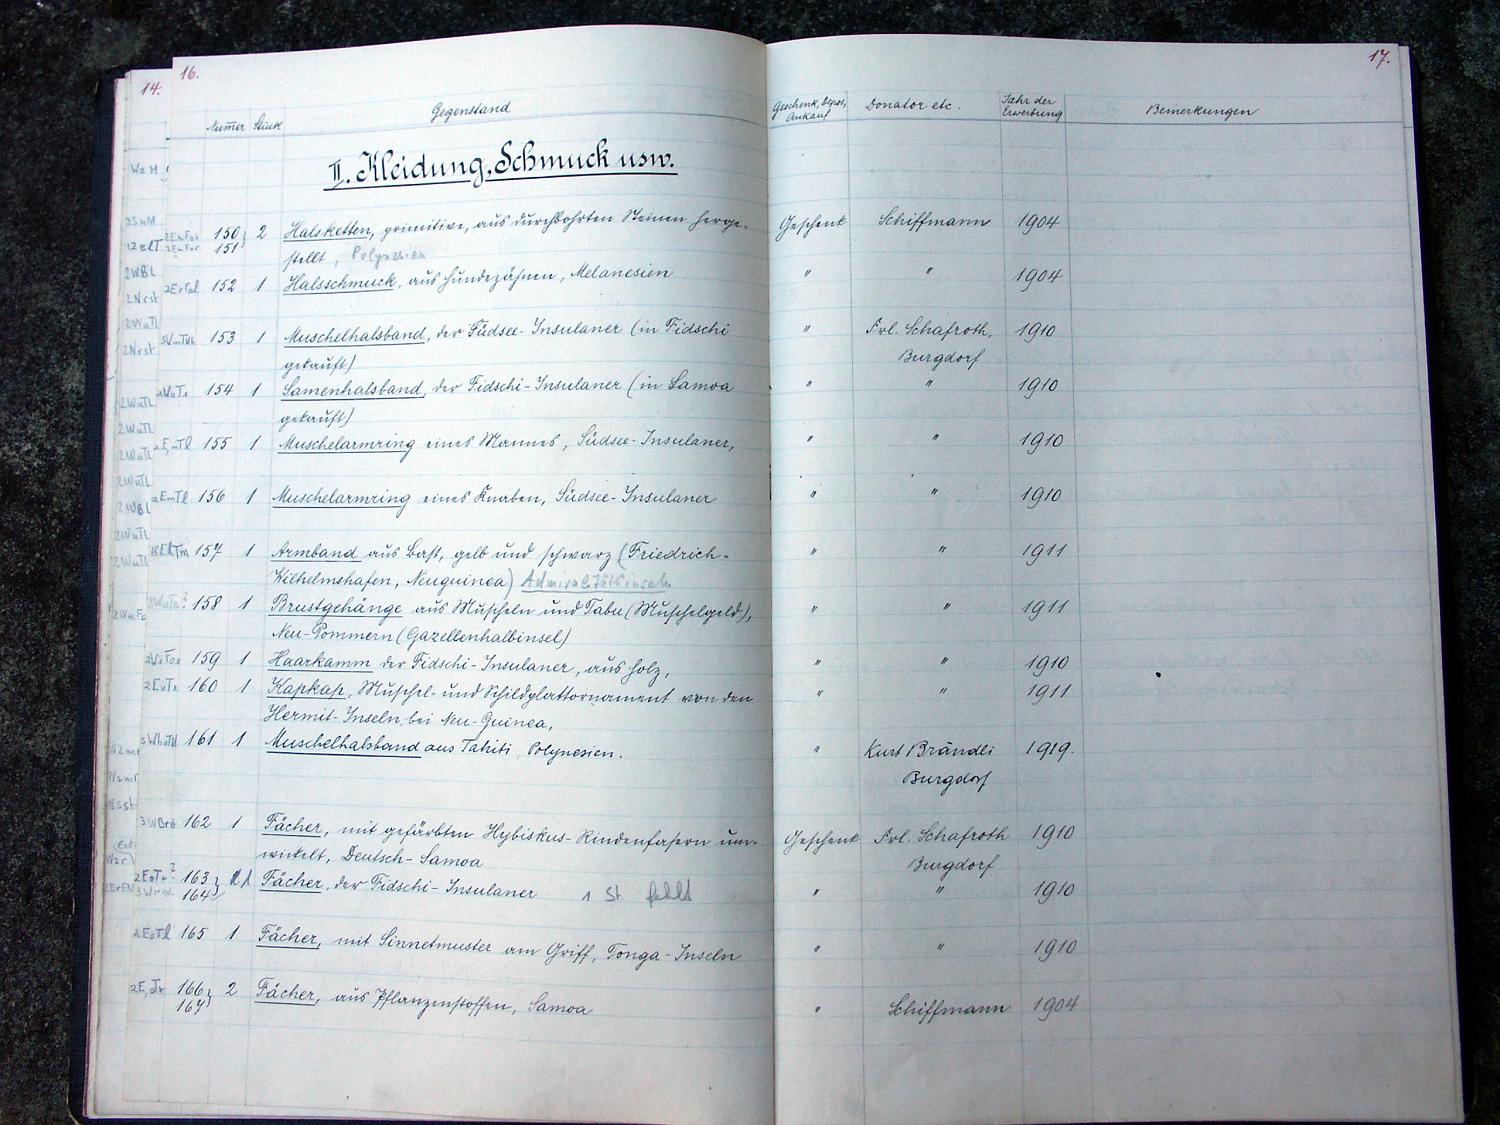 16.
14.
17.
Numer Stück Gegenstand Geschenk, Depos, Donator etc. Jahr der Bemerkungen
Ankauf Erwerbung
II. Kleidung, Schmuck usw.
150 2 Halsketten, primitive, aus durchbohrten Steinen herge- Geschenk Schiffmann 1904
151 stellt, Polynesien
152 1 Halsschmuck, aus Hundezähnen, Melanesien " " 1904
153 1 Muschelhalsband, der Südsee-Insulaner (in Fidschi " Frl. Schafroth, 1910
gekauft) Burgdorf
154 1 Samenhalsband, der Fidschi-Insulaner (in Samoa " " 1910
gekauft)
155 1 Muschelarmring eines Mannes, Südsee-Insulaner, " " 1910
156 1 Muschelarmring eines Knaben, Südsee-Insulaner " " 1910
157 1 Armband aus Bast, gelb und schwarz (Friedrich- " " 1911
Wilhelmshafen, Neuguinea) Admiralitätsinseln
158 1 Brustgehänge aus Muscheln und Tabu (Muschelgeld), " " 1911
Neu-Pommern (Gazellenhalbinsel)
159 1 Haarkamm der Fidschi-Insulaner, aus Holz, " " 1910
160 1 Kapkap, Muschel- und Schildplattornament von den " " 1911
Hermit-Inseln, bei Neu-Guinea,
161 1 Muschelhalsband aus Tahiti, Polynesien. " Kurt Brändli 1919.
Burgdorf
162 1 Fächer, mit gefärbten Hybiskus-Rindenfasern um- Geschenk Frl. Schafroth 1910
wickelt, Deutsch-Samoa Burgdorf
163 1 Fächer, der Fidschi-Insulaner 1 St. fehlt " " 1910
164
165 1 Fächer, mit Sinnetmuster am Griff, Tonga-Inseln " " 1910
166 2 Fächer, aus Pflanzenstoffen, Samoa " Schiffmann 1904
167